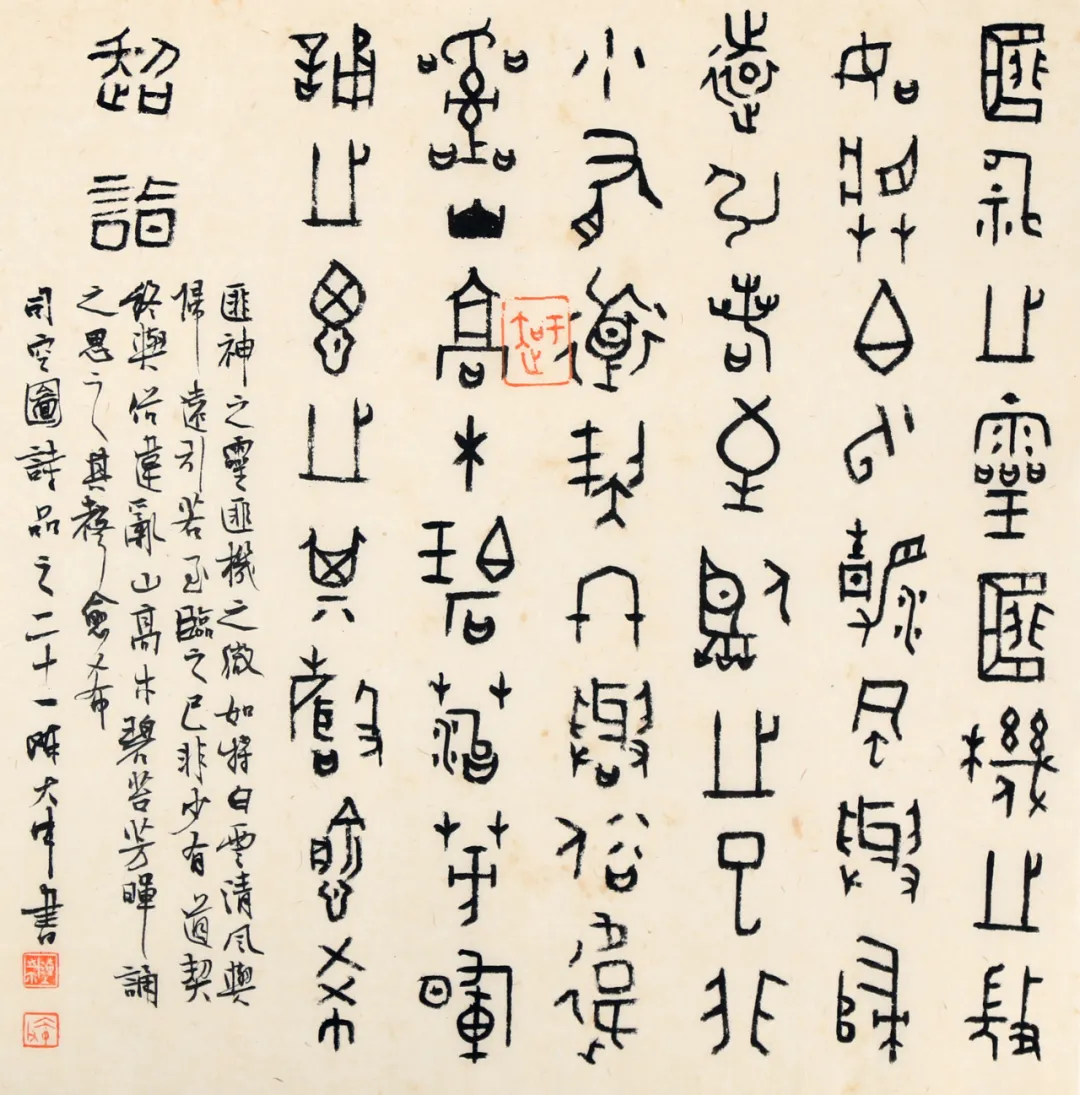 匪神之靈匪機之微
如將白雲清風與歸
遠引若至臨之已非
少有道契終與俗違
亂山高木碧苔芳暉
誦之思之其聲愈希
超詣
匪神之靈匪機之微如將白雲清風與
歸遠引若至臨之已非少有道契
終與俗違亂山高木碧苔芳暉誦
之思之其聲愈希
司空圖詩品之二十一陳大中書